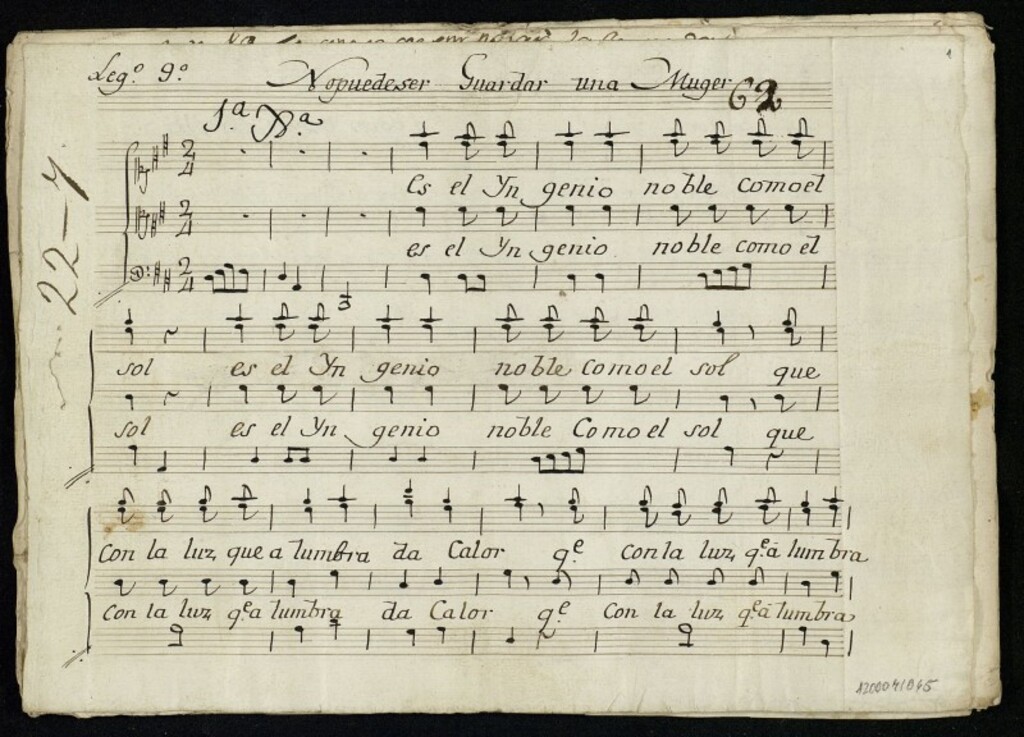 Leg.º 9.º No puede ser Guardar una Muger 62
1.ª X.ª
22-7
Es el Yn genio noble como el
es el Yn genio noble como el
3
sol es el Yn genio noble Como el sol que
sol es el Yn genio noble Como el sol que
Con la luz que a lumbra da Calor q.e con la luz q.e a lumbra
Con la luz q.e a lumbra da Calor q.e Con la luz q.e a lumbra
1200041045